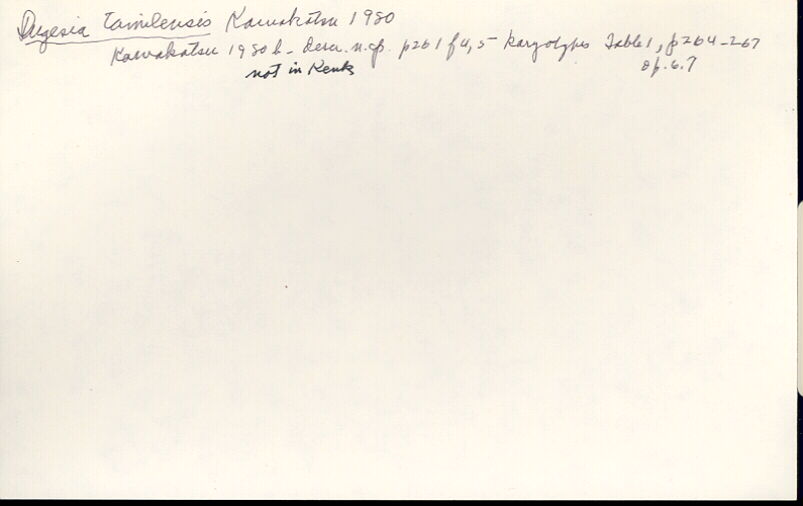 Dugesia tamilensis Kawakatsu 1980
Kawakatsu 1980b - descr. n.sp. p261 f4,5 - karyotypes Table 1, p264-267
not in Kenk
f.6.7